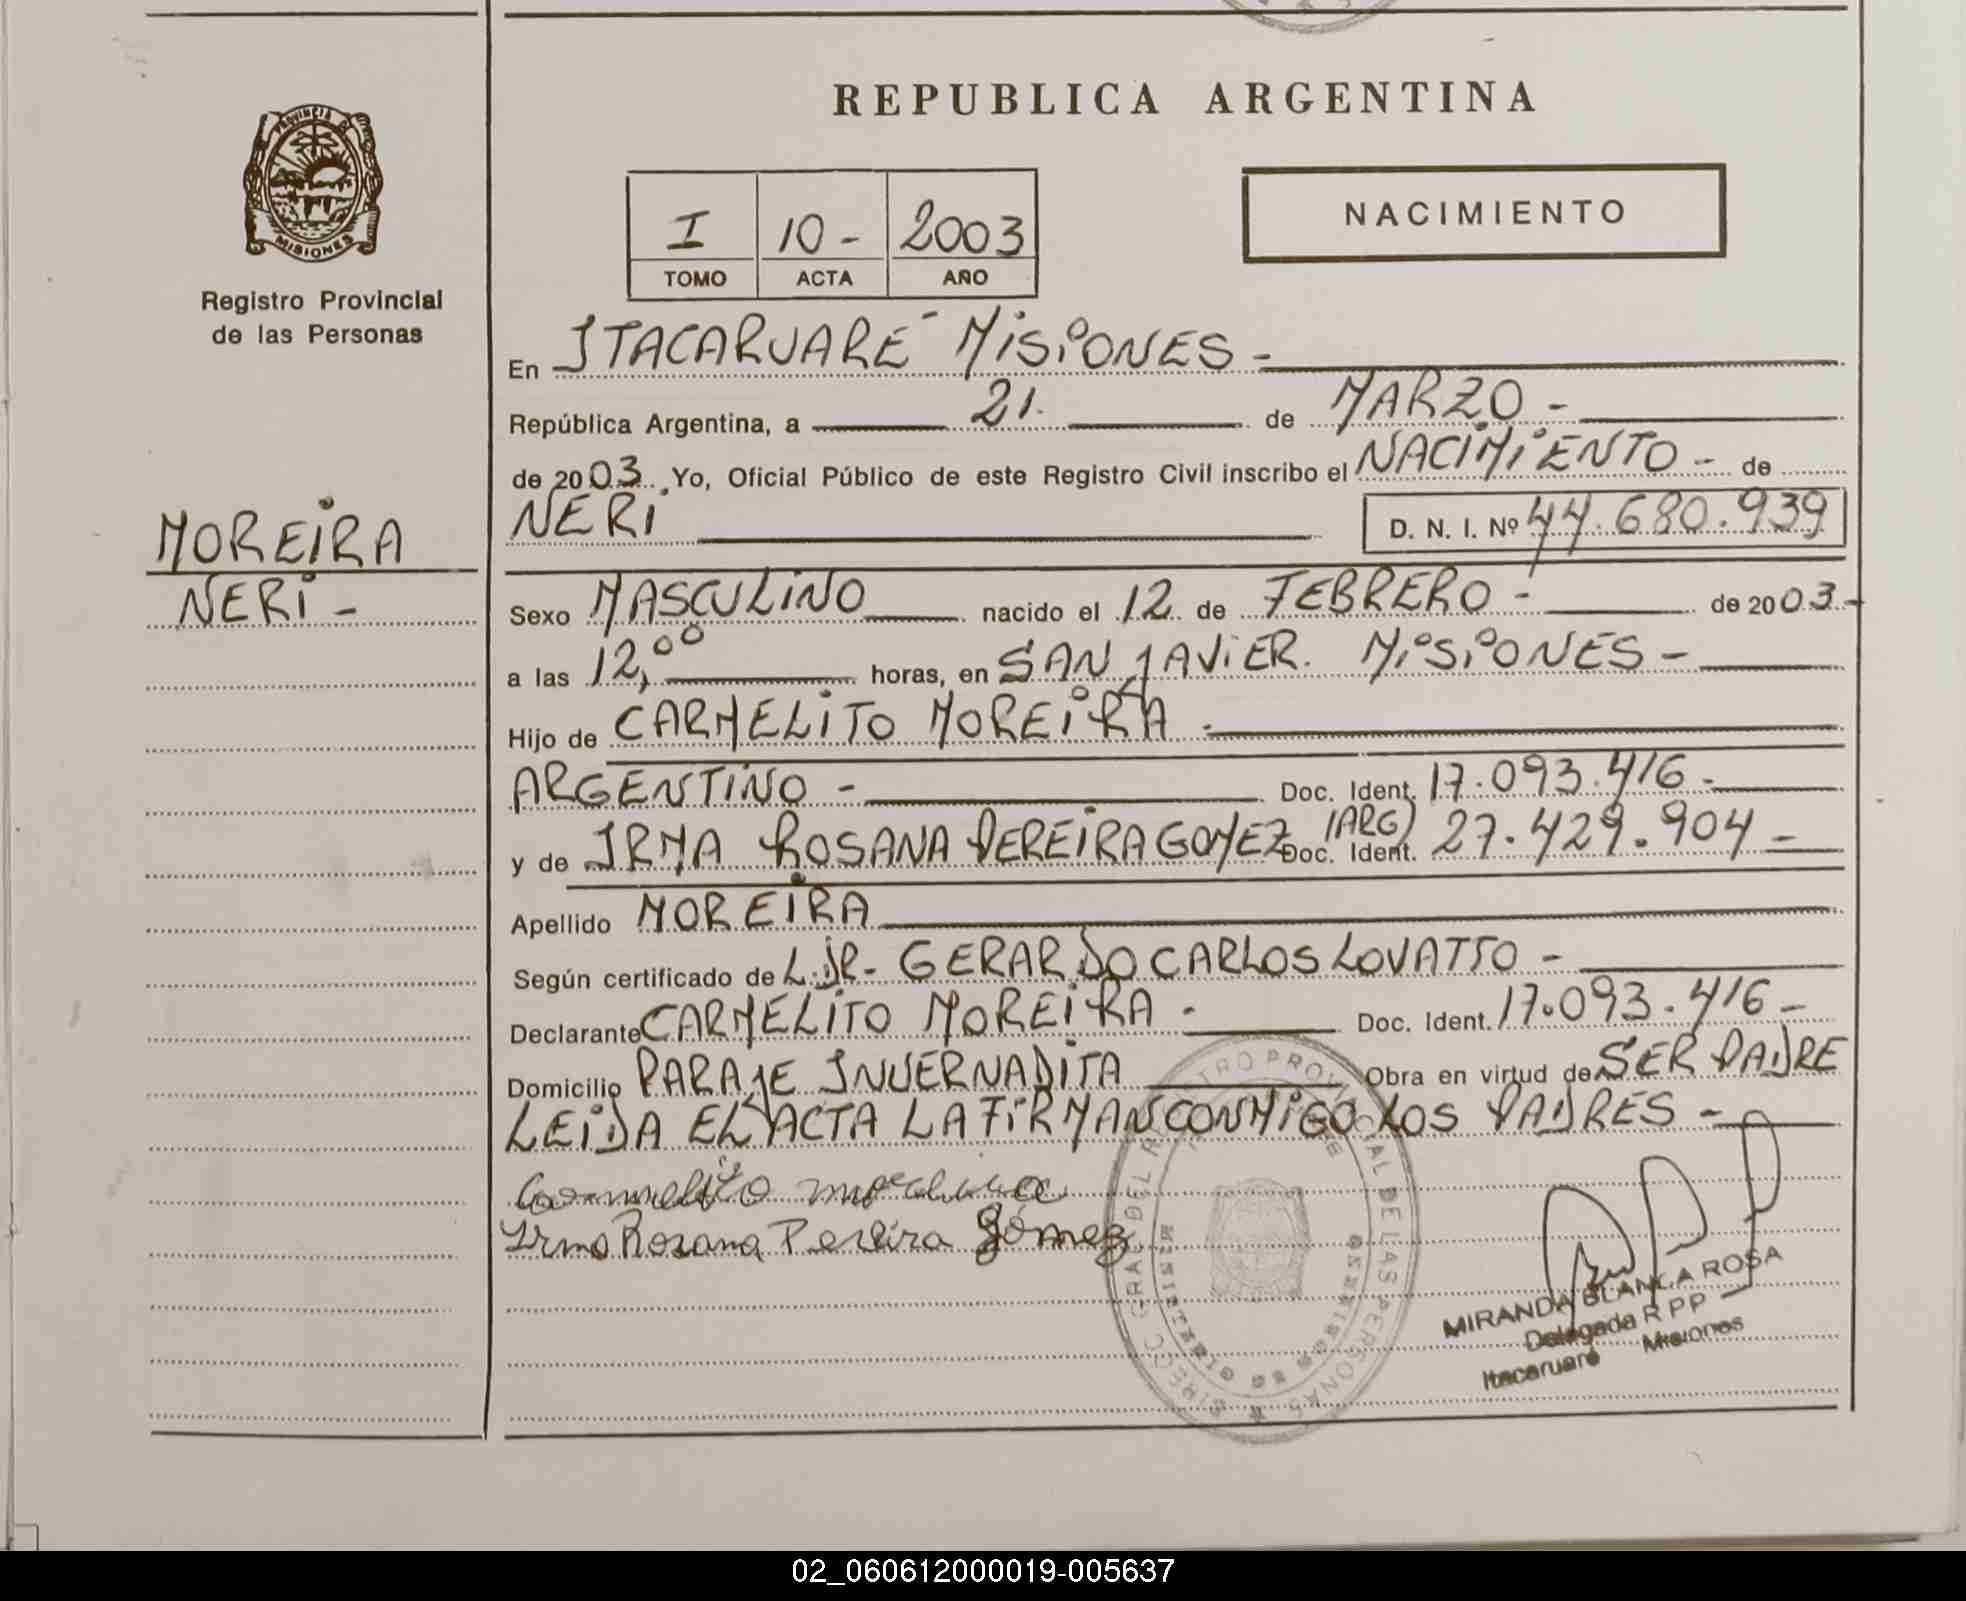 REPUBLICA ARGENTINA
PROVINCIA DE
MISIONES
Registro Provincial
de las Personas
I 10- 2003
TOMO ACTA AÑO
NACIMIENTO
En ITACARUARE MISIONES-
República Argentina, a 21. de MARZO-
de 2003. Yo, Oficial Público de este Registro Civil inscribo el NACIMIENTO- de
NERI D. N. I. Nº 44.680.939
MOREIRA
NERI-
Sexo MASCULINO nacido el 12 de FEBRERO- de 2003-
a las 12,00 horas, en SAN JAVIER. MISIONES-
Hijo de CARMELITO MOREIRA-
ARGENTINO- Doc. Ident. 17.093.416-
y de IRMA ROSANA PEREIRA GOMEZ (ARG) Doc. Ident. 27.429.904-
Apellido MOREIRA
Según certificado de L. DR- GERARDO CARLOS LOVATTO-
Declarante CARMELITO MOREIRA- Doc. Ident. 17.093.416-
Domicilio PARAJE INVERNADITA Obra en virtud de SER PADRE
LEIDA EL ACTA LA FIRMAN CONMIGO LOS PADRES-
Carmelito
Irma Rosana Pereira Gómez
PROVINCIAL DE LAS PERSONAS
MIRANDA BLANCA ROSA
Delegada R P P
Itacaruaré Misiones
02_060612000019-005637